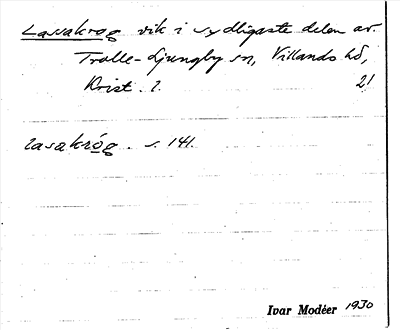 Lassakrog vik i sydligaste delen av
Tralle-Ljungby sn, Villands hd,
Krist. l. 21
lasakróg. s. 141.
Ivar Modéer 1930